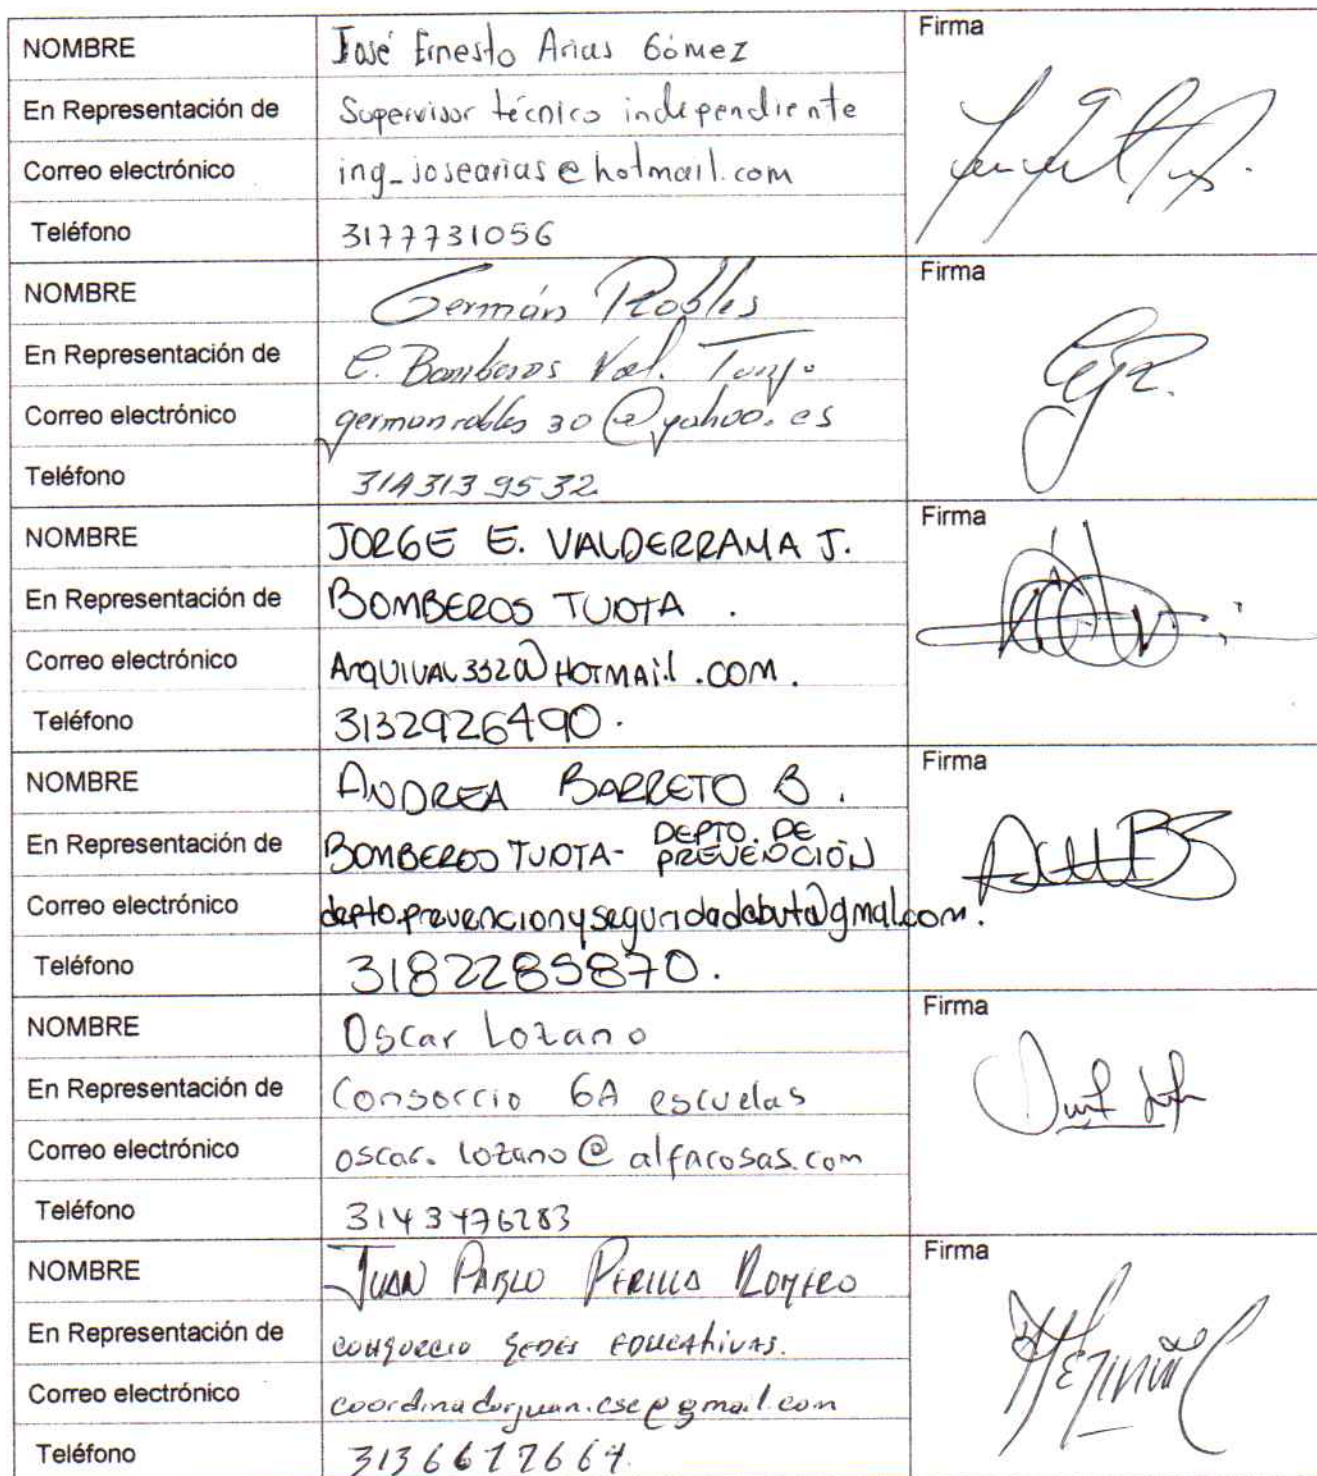 NOMBRE José Ernesto Arias Gómez Firma
En Representación de Supervisor técnico independiente
Correo electrónico ing_josearias@hotmail.com
Teléfono 3177731056
NOMBRE Germán Robles Firma
En Representación de C. Bomberos Vol.
Correo electrónico germanrobles30@yahoo.es
Teléfono 3143139532
NOMBRE JORGE E. VALDERRAMA J. Firma
En Representación de BOMBEROS TUNTA.
Correo electrónico ARQUIVAL332@HOTMAIL.COM.
Teléfono 3132926490.
NOMBRE ANDREA BARRETO B. Firma
En Representación de BOMBEROS TUNTA- DEPTO. DE PREVENCIÓN
Correo electrónico depto.prevencionyseguridadcbvta@gmal.com.
Teléfono 3182285870.
NOMBRE Oscar Lozano Firma
En Representación de Consorcio 6A escuelas
Correo electrónico oscar.lozano@alfacosas.com
Teléfono 3143476283
NOMBRE JUAN PABLO PERILLA ROMERO Firma
En Representación de CONSORCIO SEDES EDUCATIVAS.
Correo electrónico coordinadorjuan.cse@gmail.com
Teléfono